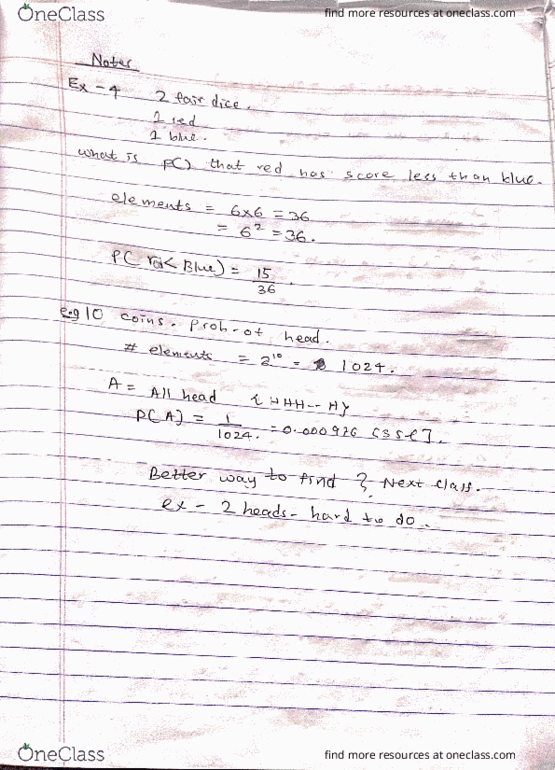 OneClass
find more resources at oneclass.com
Notes
Ex - 4 2 fair dice.
1 red
1 blue.
what is P() that red has score less than blue.
elements = 6x6 = 36
= 6² = 36.
P( red < Blue) = 15/36.
e.g 10 coins. Prob. of head.
# elements = 2¹⁰ = 1024.
A = All head { HHH-- H}
P(A) = 1/1024. = 0.000976
Better way to find ? Next class.
ex - 2 heads - hard to do.
OneClass
find more resources at oneclass.com